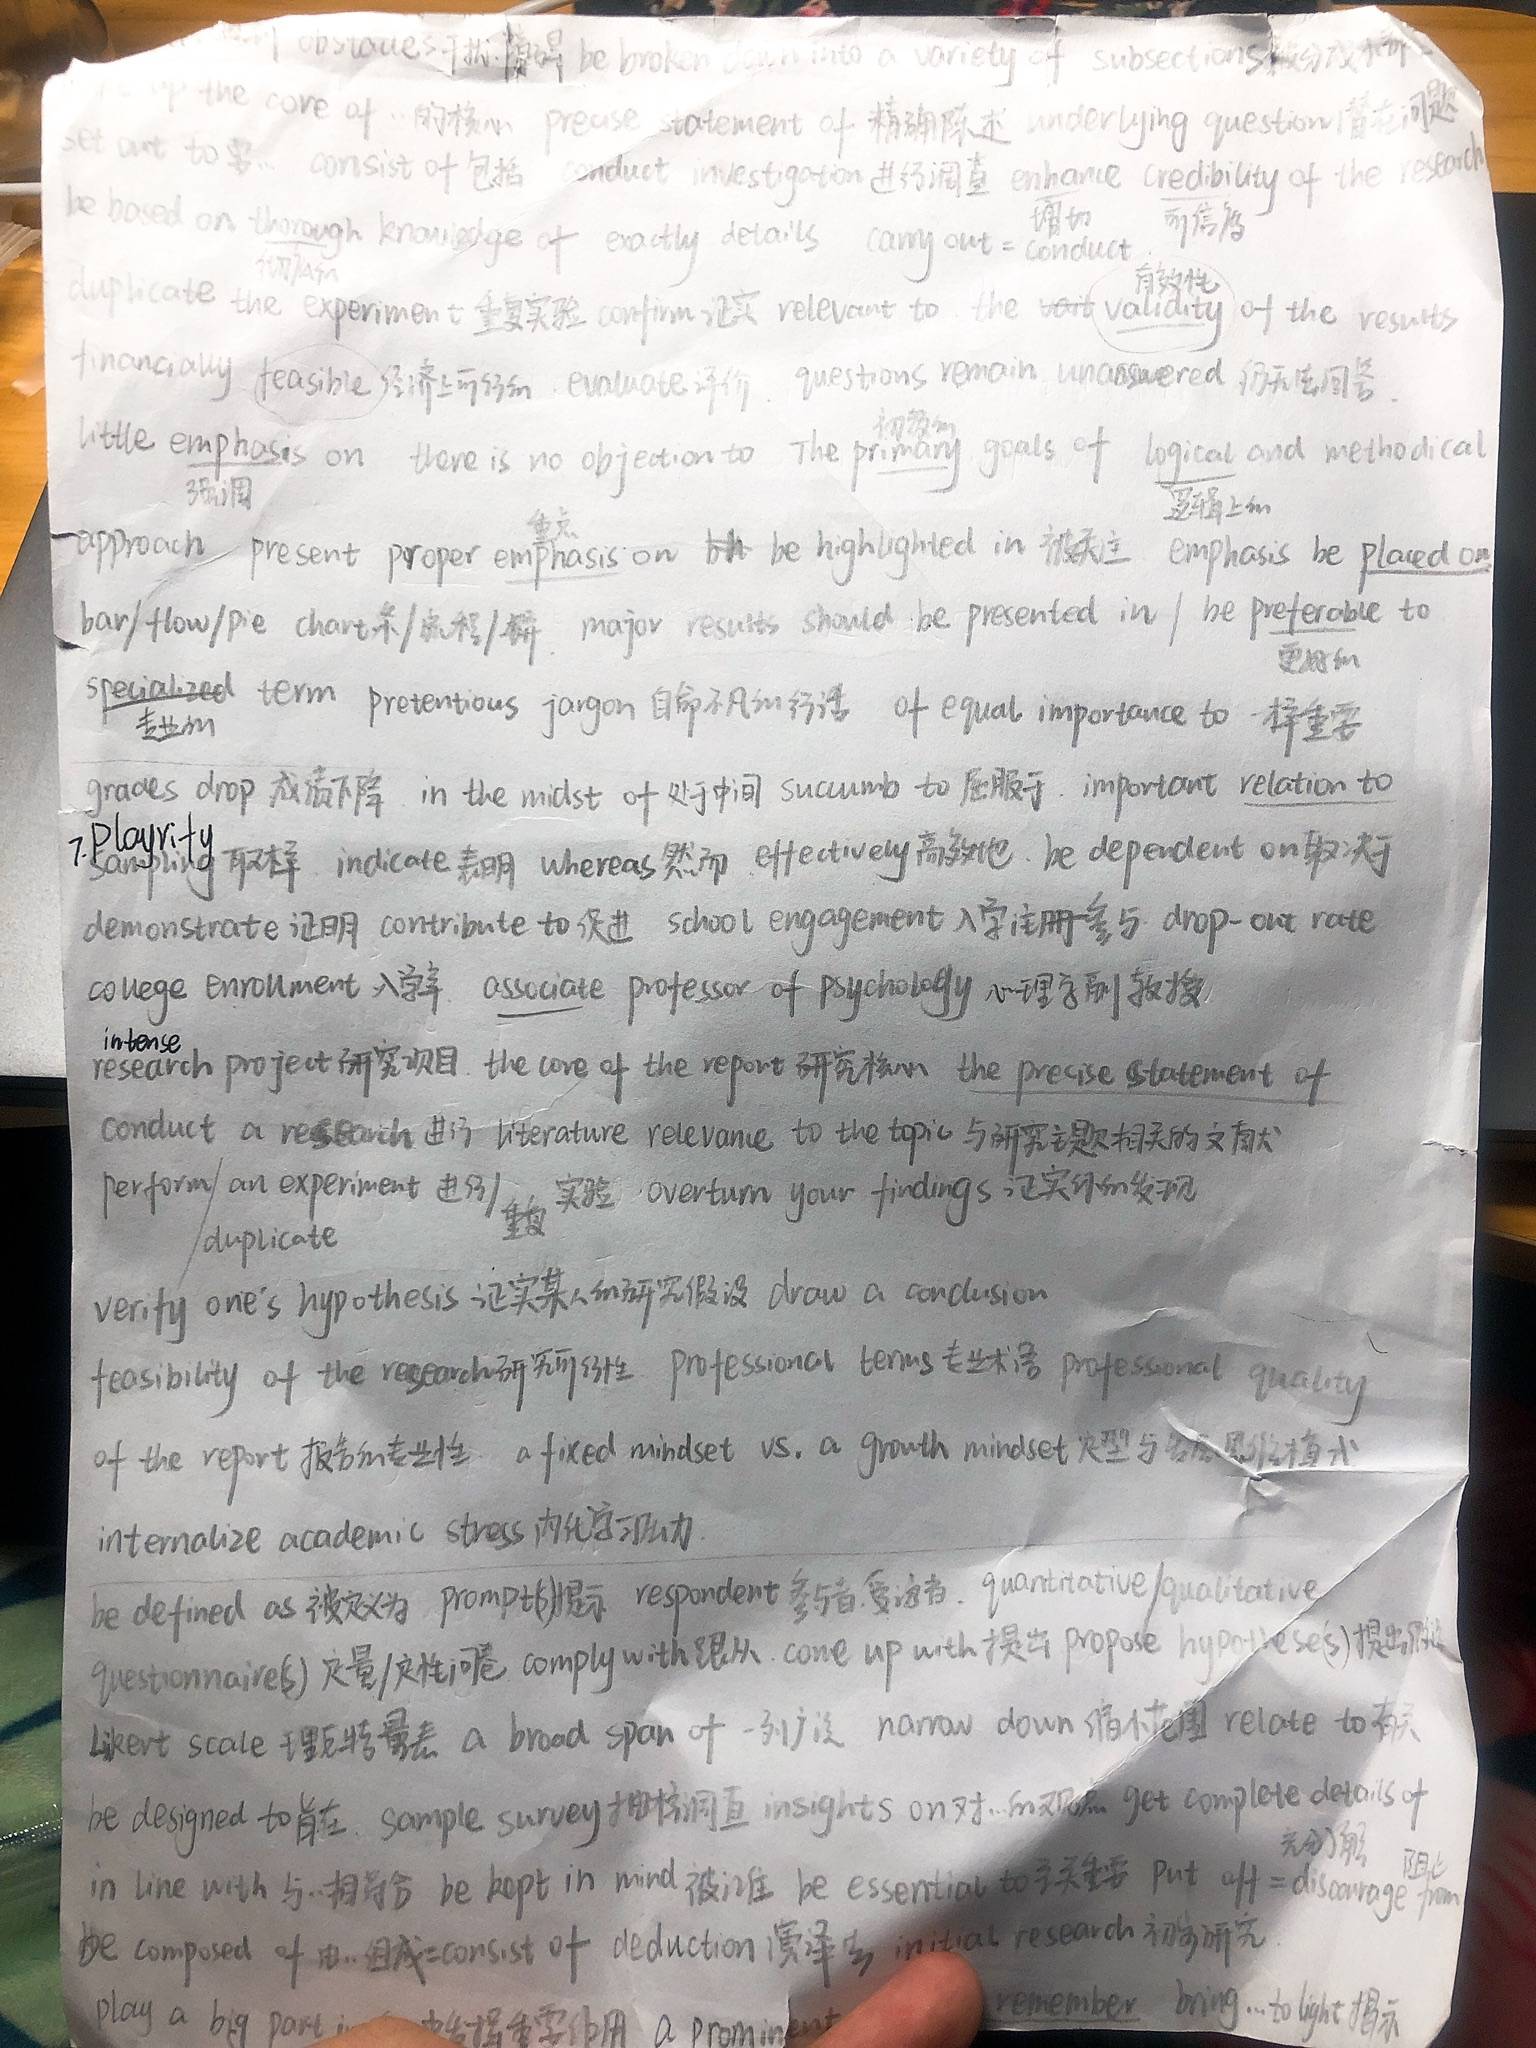 obstacles 干扰.障碍 be broken down into a variety of subsections
up the core of …的核心 precise statement of 精确陈述 underlying question 潜在问题
set out to 要… consist of 包括 conduct investigation 进行调查 enhance credibility of the research
增加 可信度
be based on thorough knowledge of exactly details carry out = conduct
彻底的 有效性
duplicate the experiment 重复实验 confirm 证实 relevant to the validity of the results
financially feasible 经济上可行的 evaluate 评价. questions remain unanswered 仍无法回答.
初级的
little emphasis on there is no objection to The primary goals of logical and methodical
强调 逻辑上的
重点
approach present proper emphasis on be highlighted in 被关注 emphasis be placed on
bar/flow/pie chart 条/流程/饼. major results should be presented in / be preferable to
更好的
specialized term pretentious jargon 自命不凡的行话 of equal importance to 一样重要
专业的
grades drop 成绩下降 in the midst of 处于中间 succumb to 屈服于. important relation to
7. playrity
sampling 取样 indicate 表明 whereas 然而 effectively 高效地. be dependent on 取决于
demonstrate 证明 contribute to 促进 school engagement 入学注册参与 drop-out rate
college enrollment 入学率 associate professor of psychology 心理学副教授
intense
research project 研究项目. the core of the report 研究核心 the precise statement of
conduct a research 进行 literature relevance to the topic 与研究主题相关的文献
perform/ an experiment 进行/重复 实验 overturn your findings 证实你的发现
/duplicate
verify one's hypothesis 证实某人的研究假设 draw a conclusion
feasibility of the research 研究可行性 professional terms 专业术语 professional quality
of the report 报告的专业性 a fixed mindset vs. a growth mindset 定型与
internalize academic stress 内化学习压力.
be defined as 被定义为 prompt(s) 提示 respondent 参与者.受访者. quantitative/qualitative
questionnaire(s) 定量/定性问卷 comply with 跟从. come up with 提出 propose hypothese(s) 提出假设
Likert scale 量表 a broad span of 一列广泛 narrow down 缩小范围 relate to 有关
be designed to 旨在. sample survey 抽样调查 insights on 对…的观点 get complete details of
充分了解 阻止
in line with 与…相符合 be kept in mind 被记住 be essential to 至关重要 put off = discourage from
be composed of 由…组成=consist of deduction 演绎法 initial research 初步研究.
play a big part in 发挥重要作用 a prominent remember bring…to light 揭示